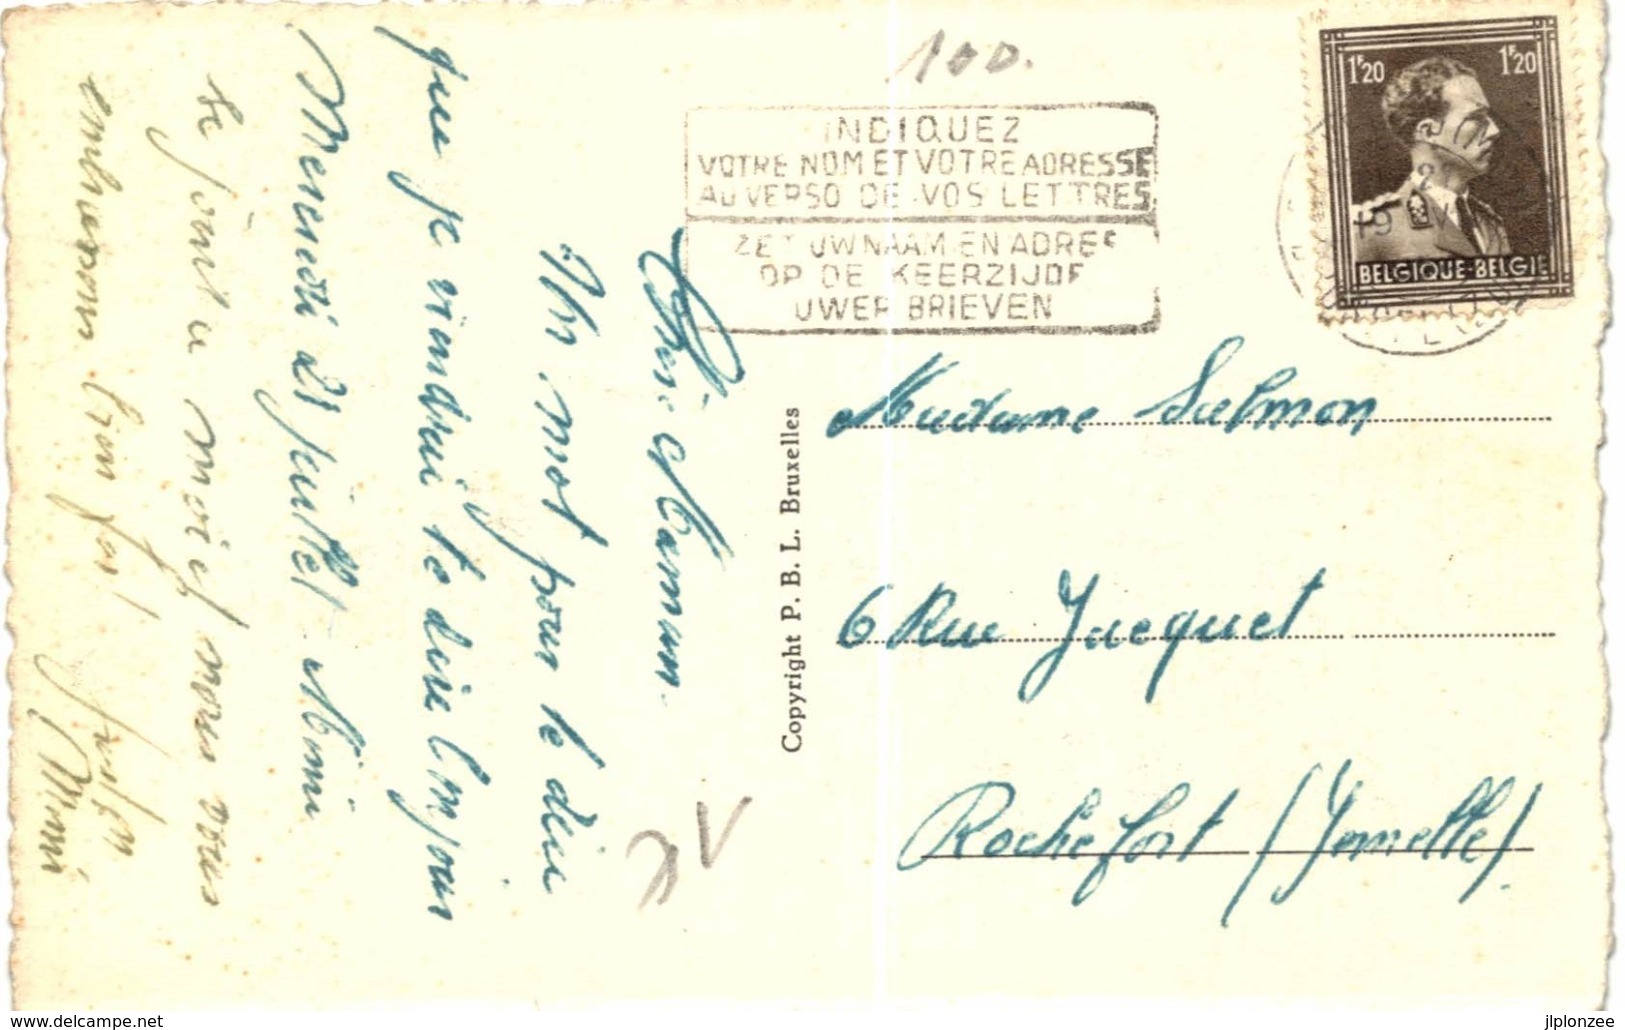 100.
INDIQUEZ
VOTRE NOM ET VOTRE ADRESSE
AU VERSO DE VOS LETTRES
ZET UW NAAM EN ADRES
OP DE KEERZIJDE
UWER BRIEVEN
1F20 1F20
BELGIQUE-BELGIE
Chère Maman
Un mot pour te dire
que je viendrai te dire bonjour
Mercredi 21 juillet. Mimi
se joint à moi et nous vous
embrassons bien fort
Mimi
Copyright P. B. L. Bruxelles
Madame Salmon
6 Rue Jacquet
Rochefort (Jemelle)
1€
www.delcampe.net
jlplonzee